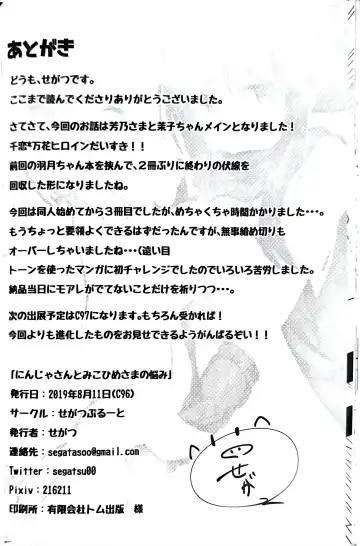 あとがき
どうも、せがつです。
ここまで読んでくださりありがとうございました。
さてさて、今回のお話は芳乃さまと茉子ちゃんメインとなりました！
千恋*万花ヒロインだいすき！！
前回の羽月ちゃん本を挟んで、２冊ぶりに終わりの伏線を
回収した形になりましたね。
今回は同人始めてから３冊目でしたが、めちゃくちゃ時間かかりました・・・。
もうちょっと要領よくできるはずだったんですが、無事締め切りも
オーバーしちゃいましたね・・・(遠い目
トーンを使ったマンガに初チャレンジでしたのでいろいろ苦労しました。
納品当日にモアレがでてないことだけを祈りつつ・・・。
次の出展予定はC97になります。もちろん受かれば！
今回よりも進化したものをお見せできるようがんばるぞい！！
「にんじゃさんとみこひめさまの悩み」
発行日：2019年8月11日(C96)
サークル：せがつぷるーと
発行者：せがつ
連絡先：segatasoo@gmail.com
Twitter：segatsu00
Pixiv：216211
印刷所：有限会社トム出版　様
せが